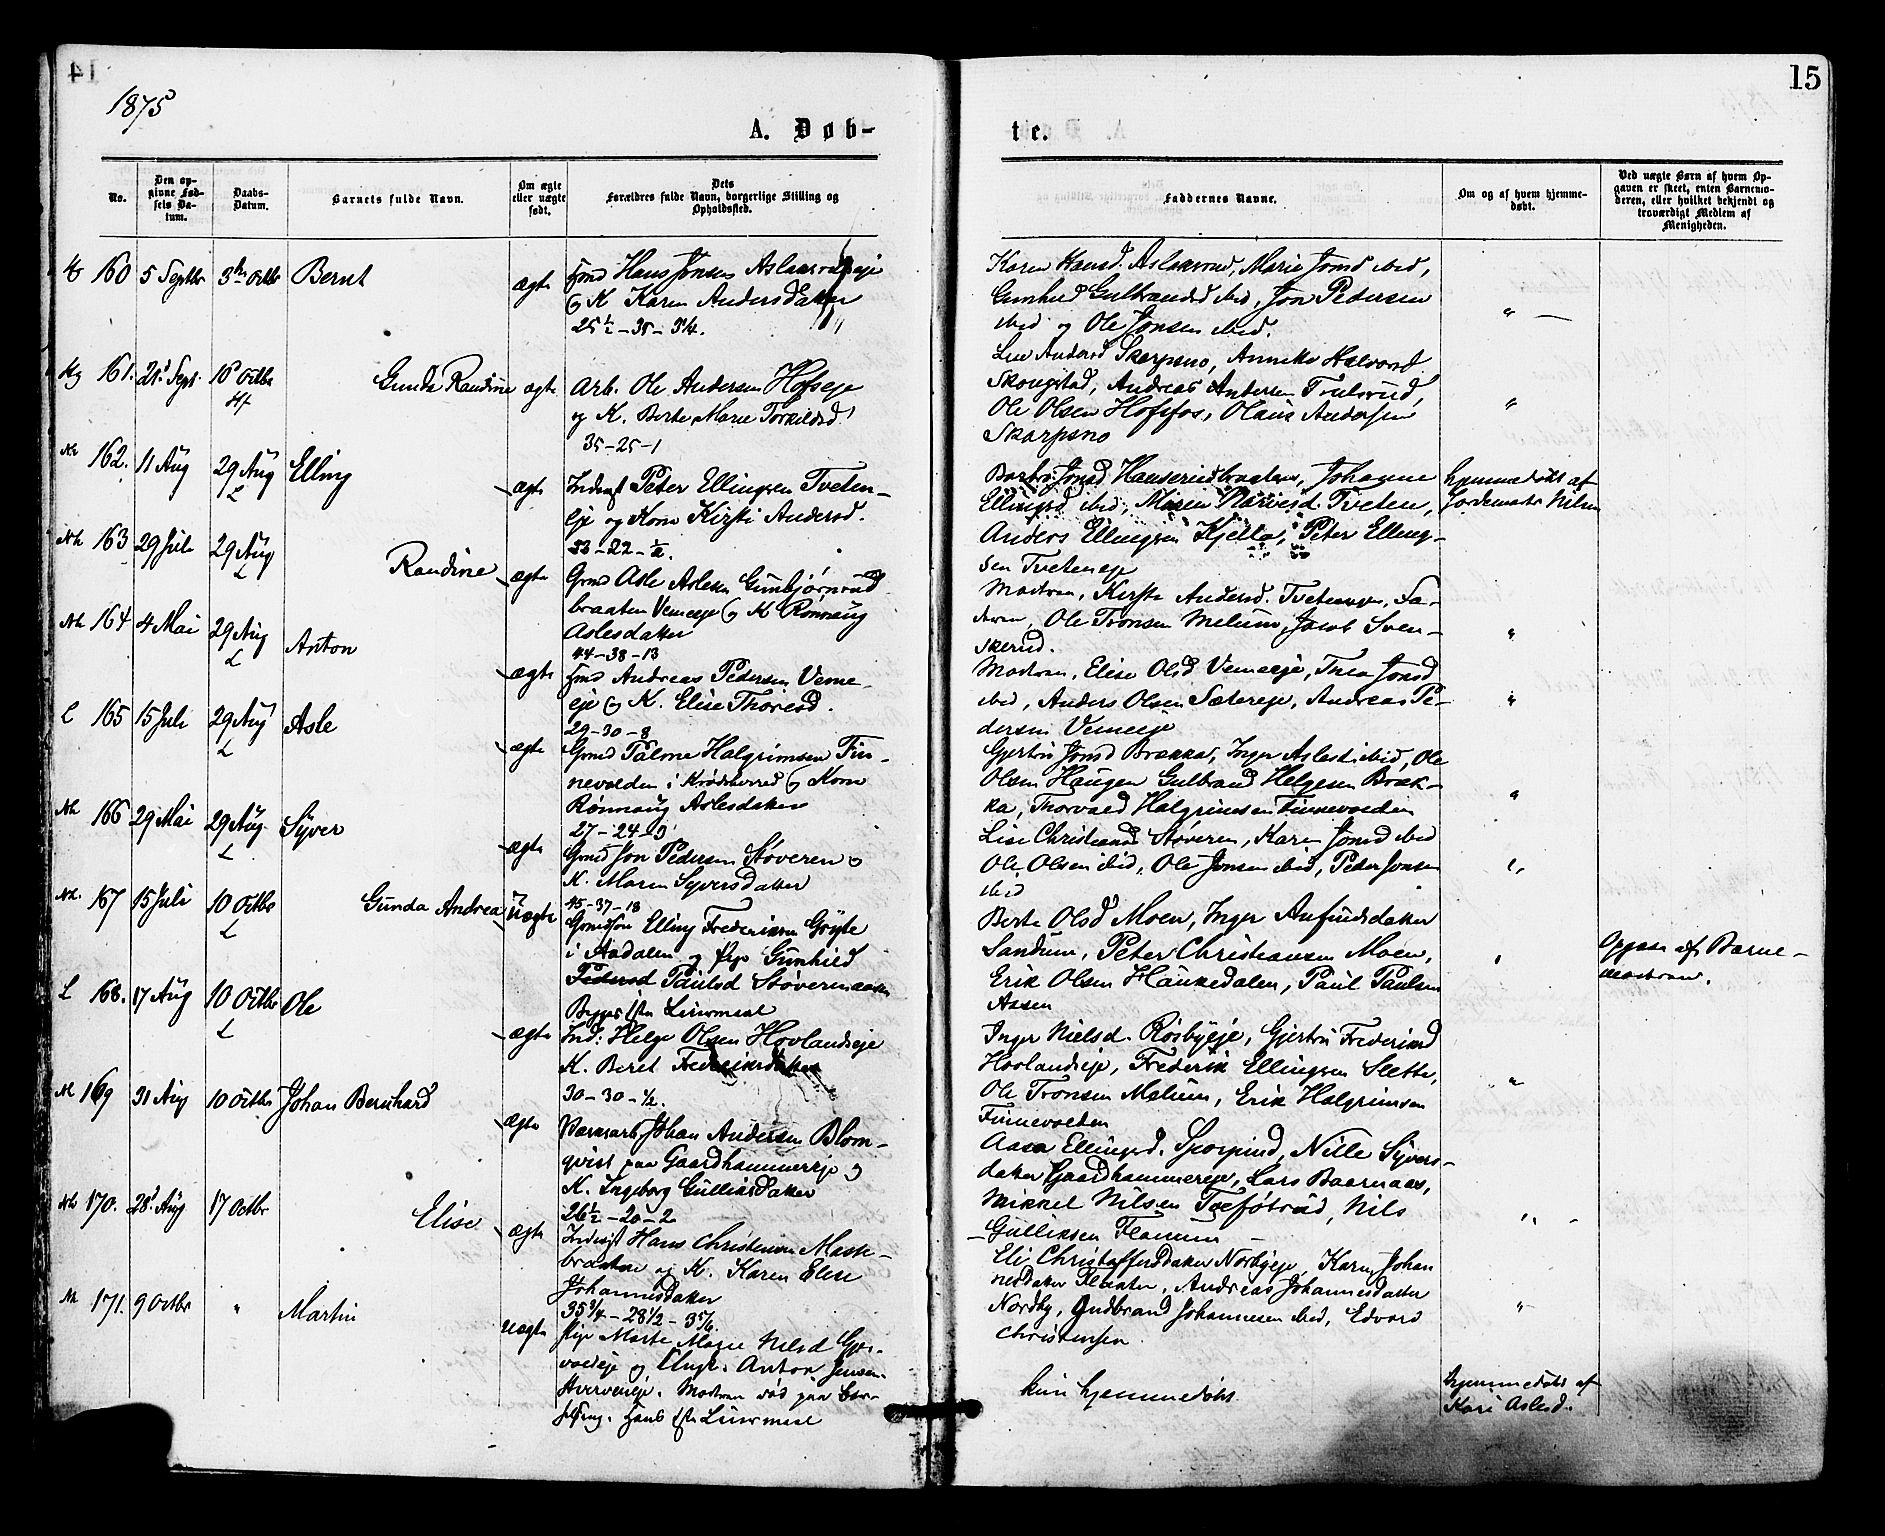 14
15
1875
A. Døb-
te.
No.
Den op-
givne Fød-
sels Da-
tum.
Daabs-
Datum.
Barnets fulde Navn.
Om ægte
eller uægte
født.
Dets
Forældres fulde Navn, borgerlige Stilling og
Opholdssted.
Faddernes Navne.
Om og af hvem hjemme-
døbt.
Ved uægte Børn af hvem Op-
gaven er skeet, enten Barnemo-
deren, eller hvilket bekjendt og
troværdigt Medlem af
Menigheden.
160 5 Septbr 3die Octbr Bernt
ægte
Gmd Hans Jonsen Aslaksrudeje
og K Karen Andersdatter
25½ - 35 - 3¼.
Karen Hansd. Aslaksrud, Marie Jonsd ibid,
Gunhild Gulbrandsd ibid, Jon Pedersen
ibid og Ole Jonsen ibid.
161. 21 Sept. 10 Octbr
Hf
Gunda Randine ægte
Arb. Ole Andersen Hofseje
og K. Berte Marie Torkildsd.
35 - 25 - 1
Lise Andersd Skarpsno, Annike Halvorsd.
Skougstad, Andreas Andersen Trulsrud,
Ole Olsen Hofsfos, Olaus Andersen
Skarpsno
Nk 162. 11 Aug 29 Aug Elling
L
ægte
Inderst Peter Ellingsen Tveten-
eje og Kone Kirsti Andersd.
33 - 22 - ½.
Jonsd Hanserudbraaten, Johanne
Ellingsd ibid, Maren Narvesd. Tveten,
Anders Ellingsen Kjella, Peter Elling-
sen Tveteneje
hjemmedøbt af
Jordemoder Nilsen
Nk 163 29 Juli 29 Aug
L
Randine ægte
Gmd Asle Aslesen Gunbjørnrud
braaten Vemeeje og K Rønnaug
Aslesdatter
44 - 38 - 13
Modren, Kirsti Andersd. Tveteneje, Fa-
deren, Ole Tronsen Melum, Jacob Sven-
skerud.
Nk 164 4 Mai 29 Aug Anton
L
ægte
Gmd Andreas Pedersen Veme-
eje og K. Elise Thoresd.
29 - 30 - 8
Modren, Elise Olsd Vemeeje, Thea Jonsd
ibid, Anders Olsen Sætereje, Andreas Pe-
dersen Vemeeje
L 165 15 Juli 29 Aug Asle
L
ægte
Gmd Palme Halgrimsen Fin-
nevolden i Krødsherred og Kone
Rønnaug Aslesdatter
27 - 24 - 0
Gjertru Jonsd Brækka, Inger Aslesd ibid, Ole
Olsen Haugen Gulbrand Helgesen Bræk-
ka, Thorvald Halgrimsen Finnevolden
Nk 166 29 Mai 29 Aug. Syver
L
ægte
Gmd Jon Pedersen Støveren og
K. Maren Syversdatter
45 - 37 - 18
Lise Christiansd Støveren, Karen Jonsd ibid
Ole Olsen ibid, Ole Jonsen ibid, Peder Jonsen
ibid
Nk. 167 15 Juli 10 Octbr
L
Gunda Andrea Uægte
Gmdsøn Elling Frederiksen Grøyte
i Aadalen og Pige Gunhild
Pedersd Paulsd Støvernaasen
Begges 1ste Leiermaal
Berte Olsd Moen, Inger Anfindsdatter
Sandum, Peter Christiansen Moen,
Erik Olsen Haukedalen, Paul Paulsen
Aasen
Opgave af Barne-
modren.
L 168. 17 Aug 10 Octbr Ole
L
ægte
Ind: Helge Olsen Hovlandseje
K. Beret Frederiksdatter
30 - 30 - ½.
Inger Nielsd. Røsbyeje, Gjertru Frederiksd
Hovlandseje, Frederik Ellingsen Slette,
Ole Tronsen Melum, Erik Halgrimsen
Finnevolden
Nk 169 31 Aug 10 Octbr Johan Bernhard
ægte
Værksarb. Johan Andersen Blom-
qvist paa Gaardhammereje og
K. Ingeborg Gulliksdatter
26½ - 20 - 2
Aase Ellingsd. Sporpind, Nille Syvers-
datter Gaardhammereje, Lars Baarnaas,
Mikkel Nilsen Treføtrud, Nils
Gulliksen Flaanum
Nk 170. 28 Aug 17 Octbr
Elise ægte
Inderst Hans Christensen Mask-
braaten og K. Karen Elise
Johannesdatter
35¾ - 28½ - 3
Eli Christoffersdatter Nordbyeje, Karen Johan
nesdatter Flaaten, Andreas Johannesdatter
Nordby, Gudbrand Johannesen ibid, Edvard
Christensen.
Nk 171. 9 Octbr " Martin
Uægte
Pige Marte Marie Nilsd
og Ungk. Anton Jensen
Modren død paa Bar-
selseng. Hans 1ste Leiermaal
kun hjemmedøbt.
hjemmedøbt af
Kari Aslesd.